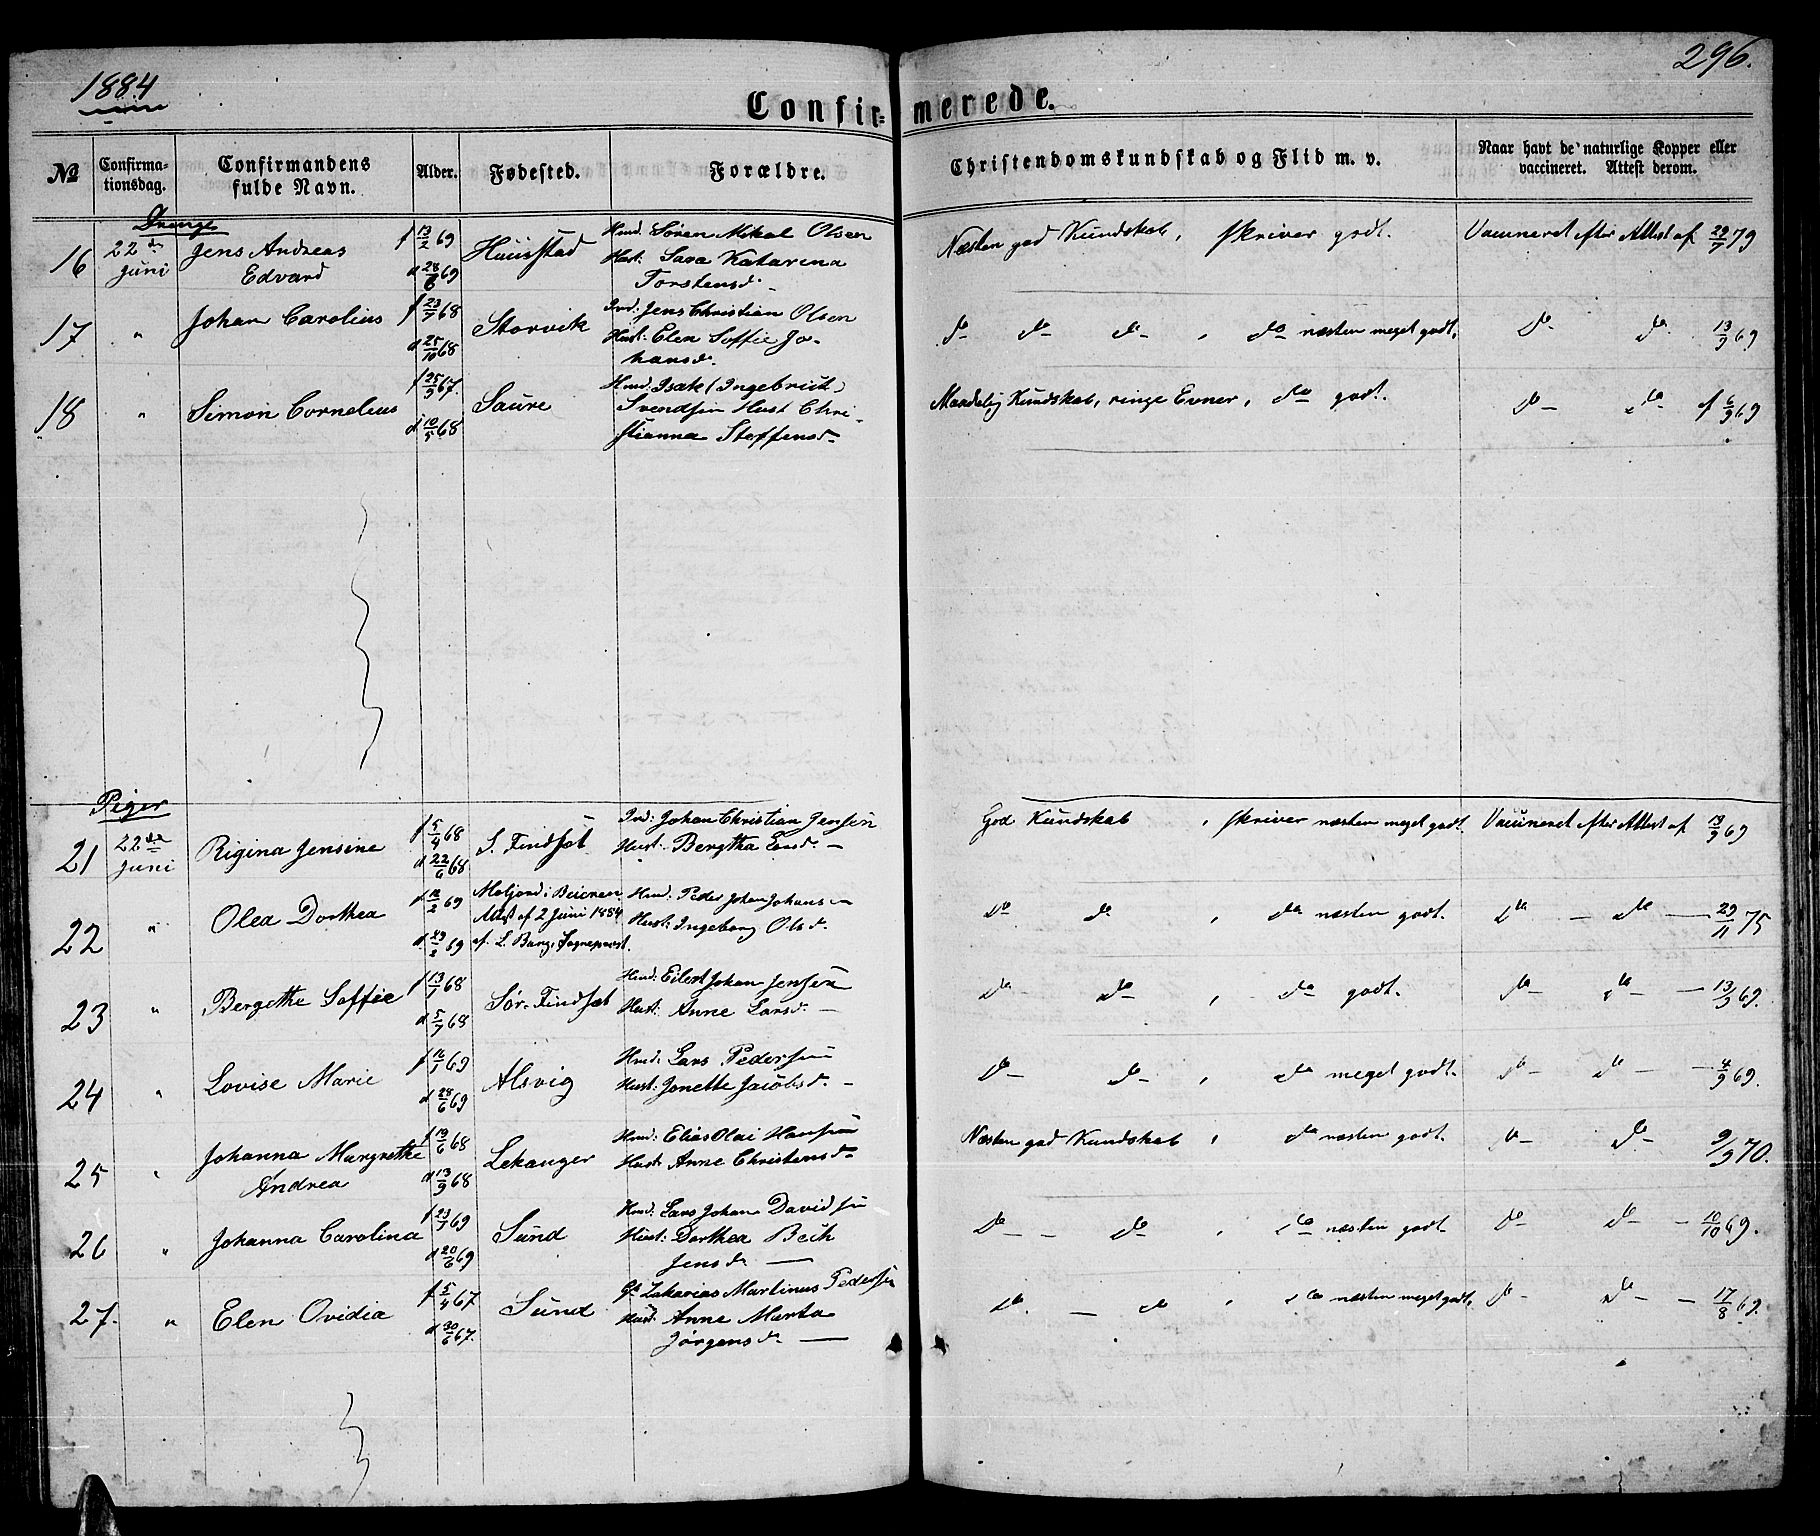 1884
296.
Confirmerede.
No
Confirmationsdag.
Confirmandens fulde Navn.
Alder.
Fødested.
Forældre.
Christendomskundskab og Flid m. v.
Naar havt de naturlige Kopper eller vaccineret. Attest derom.
Drenge
16 22de Juni Jens Andreas Edvard f 13/2 69 d 28/6 69 Huusstad Hmd. Søren Mikal Olsen Hust: Sara Katarena Torstensd. Næsten god Kundskab, skriver godt. Vaccineret efter Attest af 29/7 79
17 " Johan Carolius f 23/7 68 d 25/10 68 Storvik Ind: Jens Christian Olsen Hust: Elen Soffie Johansd. do do do, do næsten meget godt. do do 13/9 69
18 " Simon Cornelius f 25/9 67. d 10/5 68 Saure Hmd: Isak (Ingebrigt) Svendsen Hust Christianna Steffensd. Maadelig Kundskab, ringe Evner, do godt. do do af 6/9 69
Piger
21 22de Juni Rigina Jensine f 5/4 68 d 22/6 68 S. Findset Ind: Johan Christian Jensen Hust: Bergtha Ensd. God Kundskab, skriver næsten meget godt. Vaccineret efter Attest af 13/9 69
22 " Olea Dorthea f 12/2 69 d. 29/2 69 Moljord i Beieren Attest af 2 Juni 1884 af L. Bang, Sogneprest. Hmd: Peder Johan Johansen Hust: Ingeborg Olsd. do do, do næsten godt. do do 29/11 75
23 " Bergithe Soffie f 13/1 68 d 5/7 68 Sør-Findset Hmd: Eilert Johan Jensen Hust: Anne Larsd. do do, do godt. do do 13/9 69.
24 " Lovise Marie f 16/1 69 d 28/6 69 Alsvig Hmd: Lars Pedersen Hust: Jonette Jacobsd. do do, do meget godt. do do 4/9 69.
25 " Johanna Margrethe Andrea f 19/6 68 d 13/9 68 Lekanger Hmd: Elias Olai Hansen Hust: Anne Christensd. Næsten god Kundskab, do næsten godt. do do 9/9 70.
26 " Johanna Carolina f 23/1 69 d 20/6 69 Sund Hmd: Lars Johan Davidsen Hust: Dorthea Beth Jensd. do do, do næsten godt. do do 10/10 69.
27. " Elen Ovidia f 5/4 67 d 30/6 67. Sund Gd. Zakarias Martinus Pedersen Hust: Anne Marta Jørgensd. do do, do næsten meget godt, do do 17/8 69.